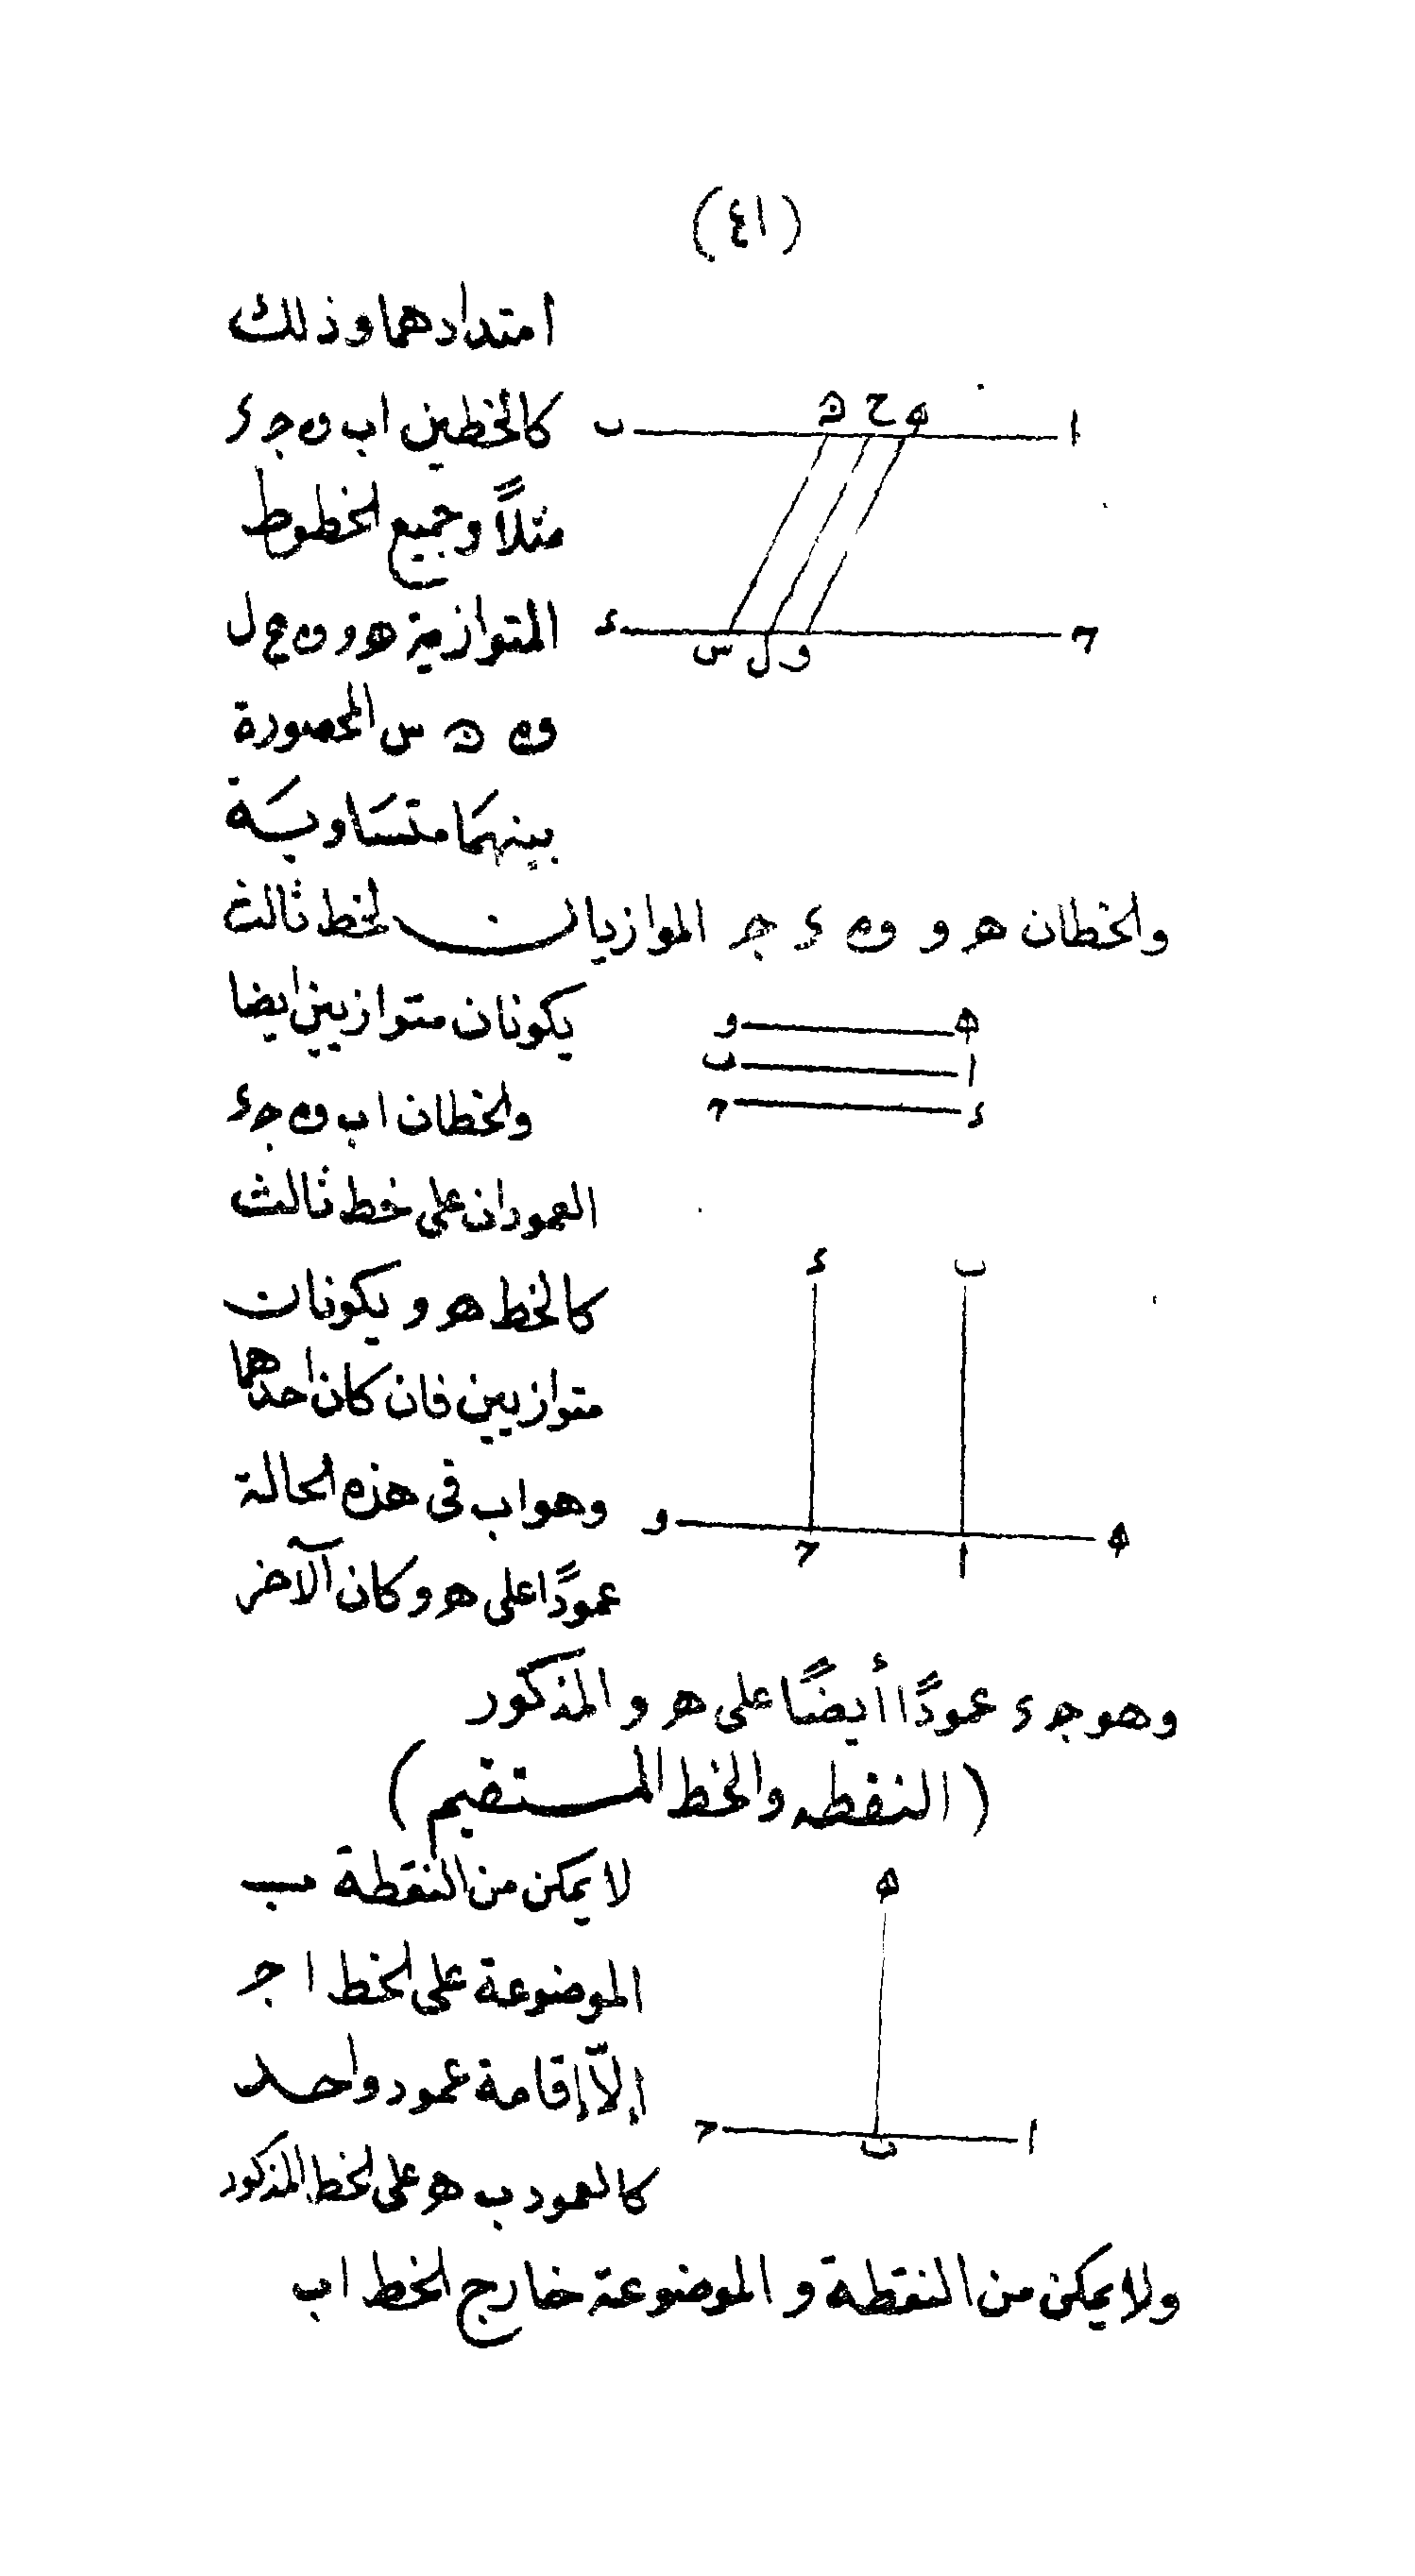 (٤١)
امتدادهما وذلك
كالخطين اب و جـ ء
ب
ه ح ﻫ
ا
مثلاً وجميع الخطوط
المتوازية هـ و و ح ل
ء
و ل س
حـ
و ه س المحصورة
بينهما متساوية
والخطان هـ و و ء جـ الموازيان لخط ثالث
يكونان متوازيين ايضا
ه و
ا ب
ء حـ
والخطان اب و جـ ء
العمودان على خط ثالث
كالخط هـ و يكونان
ب ء
متوازيين فان كان احدهما
وهو اب فى هذه الحالة
ه و
ا حـ
عمودًا على هـ و وكان الآخر
وهو جـ ء عمودًا أيضًا على هـ و المذكور
(النقطه والخط المستقيم)
لا يمكن من النقطة ب
ه
الموضوعة على الخط ا جـ
إلاّ إقامة عمود واحد
ا ب حـ
كالعمود ب هـ على الخط المذكور
ولا يمكن من النقطة و الموضوعة خارج الخط اب